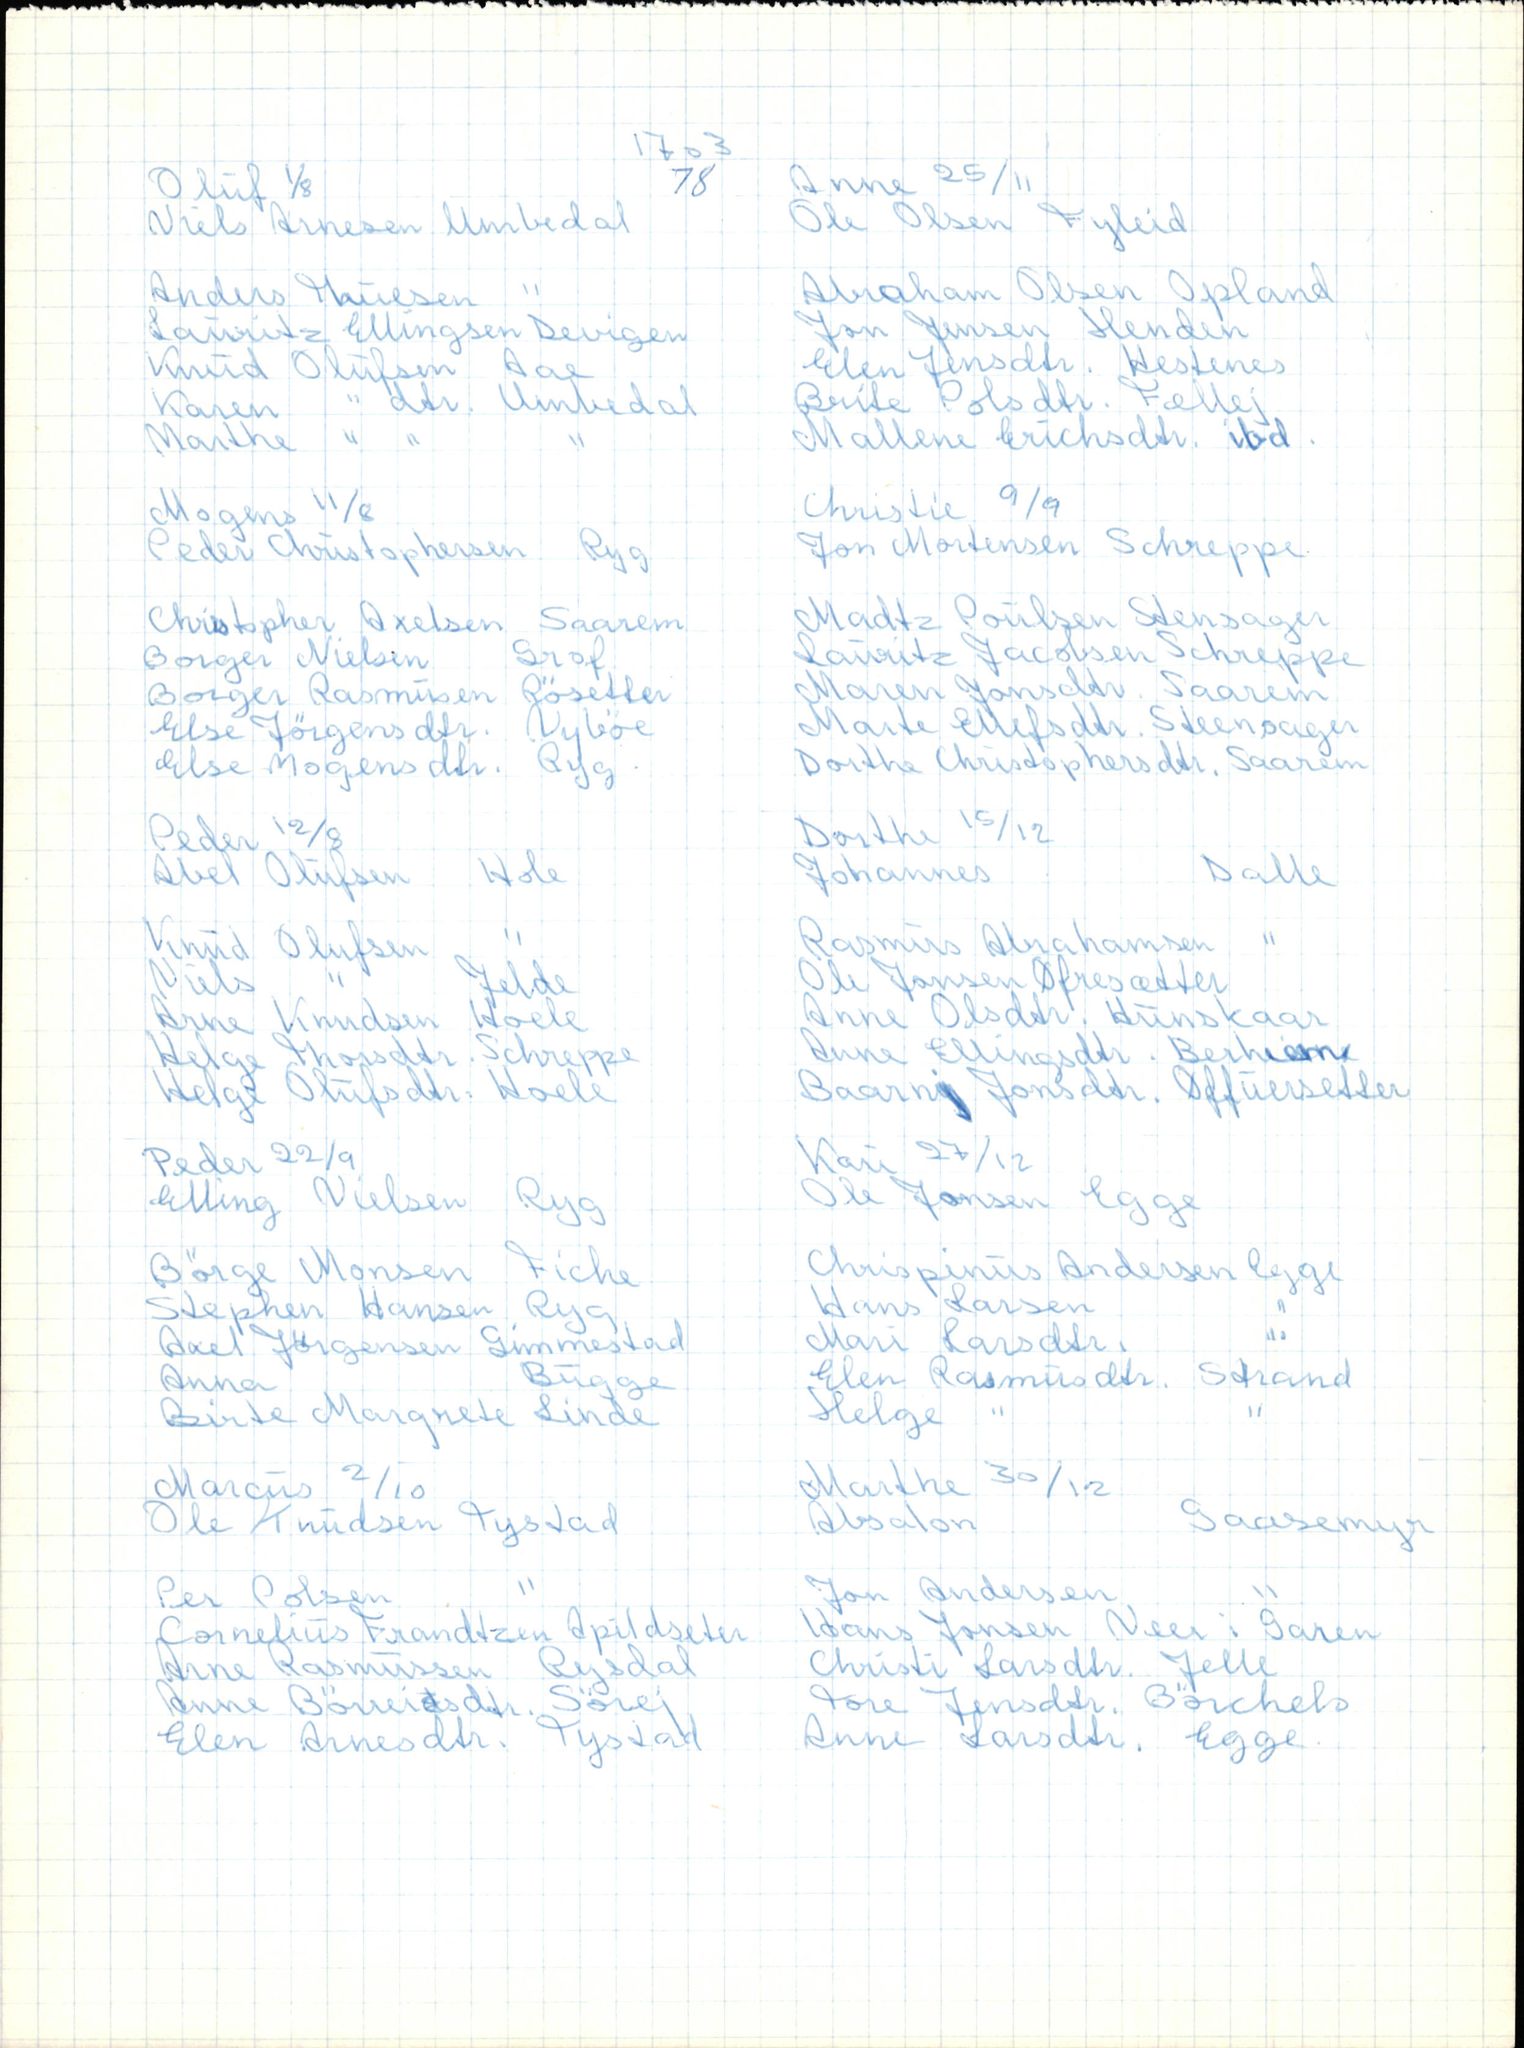 1703
78
Olüf 1/8
Niels Arnesen Umbedal
Anders Thüesen "
Laüritz Ellingsen Devigen
Knüd Olüfsen Aae
Karen " dtr. Umbedal
Marthe " " "
Mogens 11/8
Peder Christophersen Ryg
Christopher Axelsen Saarem
Borger Nielsen Grof
Borger Rasmüsen Rösetter
Else Jörgensdtr. Nyböe
Else Mogensdtr. Ryg.
Peder 12/8
Abel Olüfsen Hole
Knüd Olufsen "
Niels " Jelde
Arne Knudsen Hoele
Helge Thorsdtr. Schreppe
Helge Olüfsdtr. Hoele
Peder 22/9
Elling Nielsen Ryg
Börge Monsen Fiche
Stephen Hansen Ryg
Axel Jörgensen Gimmestad
Anna Bügge
Birte Margrete Linde
Marcüs 2/10
Ole Knüdsen Tystad
Per Polsen "
Cornelius Frandtzen Apildseter
Arne Rasmüssen Rysdal
Anne Börreitsdtr. Sörej
Elen Arnesdtr. Tystad
Anne 25/11
Ole Olsen Fyleid
Abraham Olsen Opland
Jon Jensen Henden
Elen Jensdtr. Hestenes
Brite Polsdtr. Fællej
Mallene Erichsdtr. ibd.
Christie 9/9
Jon Mortensen Schreppe.
Madtz Poülsen Stensager
Laüritz Jacobsen Schreppe
Maren Jonsdtr. Saarem
Marte Ellefsdtr. Steensager
Dorthe Christophersdtr. Saarem
Dorthe 15/12
Johannes Dalle
Rasmüs Abrahamsen "
Ole Jonsen Øfresætter
Anne Olsdtr. Hünskaar
Anne Ellingsdtr. Berhiem
Baarnj Jonsdtr. Øffüersetter
Kari 27/12
Ole Jonsen Egge
Chrispinüs Andersen Egge
Hans Larsen "
Mari Larsdtr. "
Elen Rasmüsdtr. Strand
Helge " "
Marthe 30/12
Absalon Gaasemyr
Jon Andersen "
Hans Jonsen Neer i Garen
Christi Larsdtr. Jelle
Tore Jensdtr. Börchels
Anne Larsdtr. Egge.